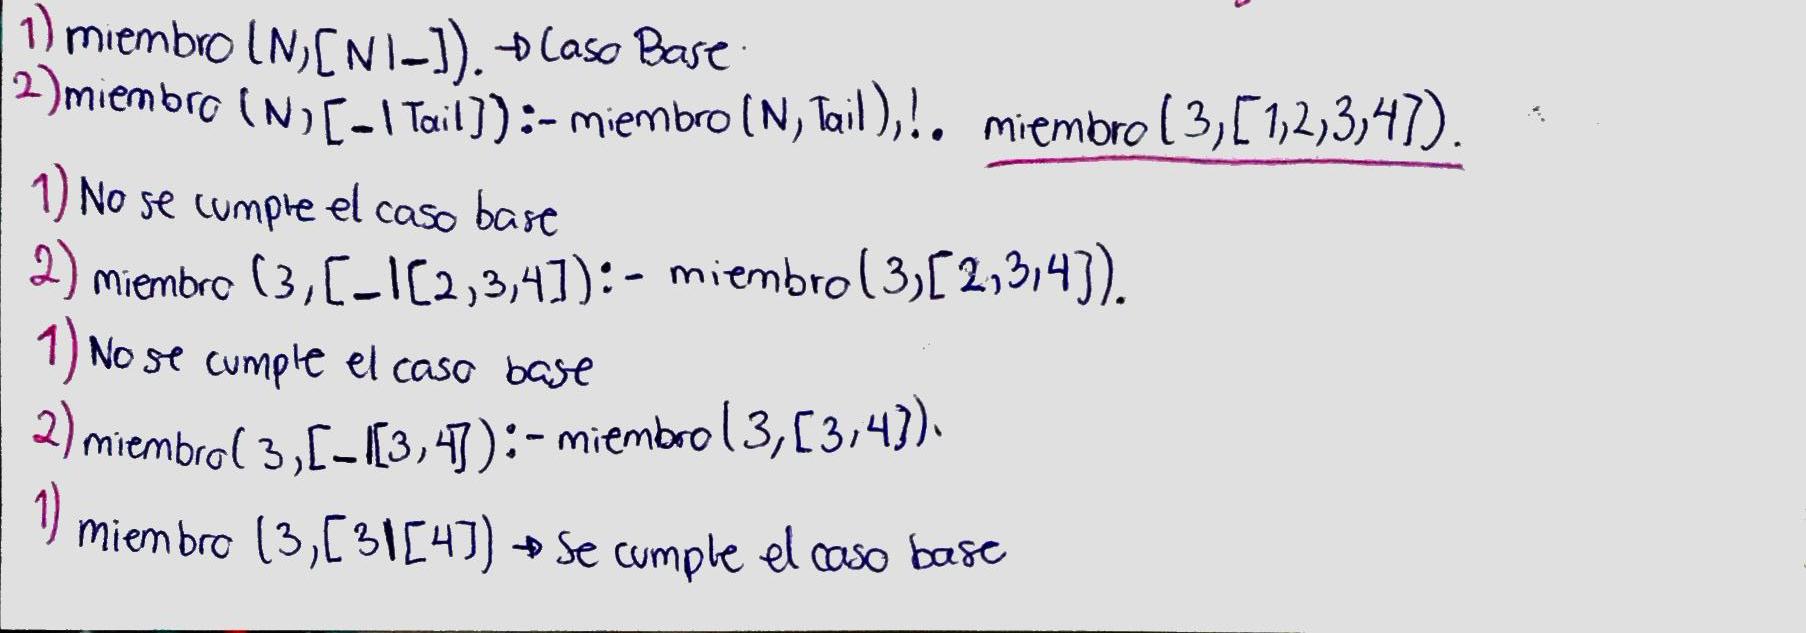 1) miembro (N,[N|_]). → Caso Base.
2) miembro (N,[_|Tail]) :- miembro (N, Tail),!. miembro (3,[1,2,3,4]).
1) No se cumple el caso base
2) miembro (3,[_|[2,3,4]) :- miembro (3,[2,3,4]).
1) No se cumple el caso base
2) miembro (3,[_|[3,4]) :- miembro (3,[3,4]).
1) miembro (3,[3|[4]) → Se cumple el caso base